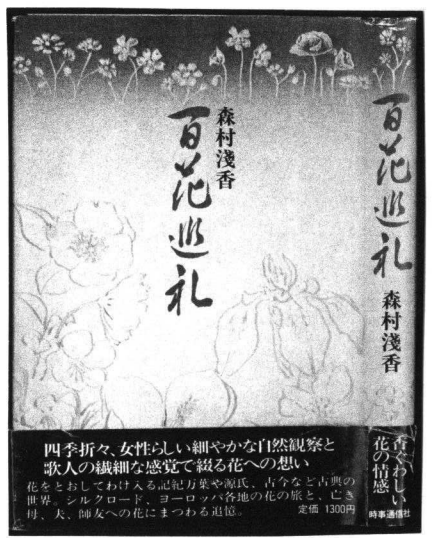 森村淺香
百花巡礼
四季折々、女性らしい細やかな自然観察と
歌人の繊細な感覚で綴る花への想い
花をとおしてわけ入る記紀万葉や源氏、古今など古典の
世界。シルクロード、ヨーロッパ各地の花の旅と、亡き
母、夫、師友への花にまつわる追憶。
定価 1300円
百花巡礼
森村淺香
香ぐわしい
花の情感
時事通信社